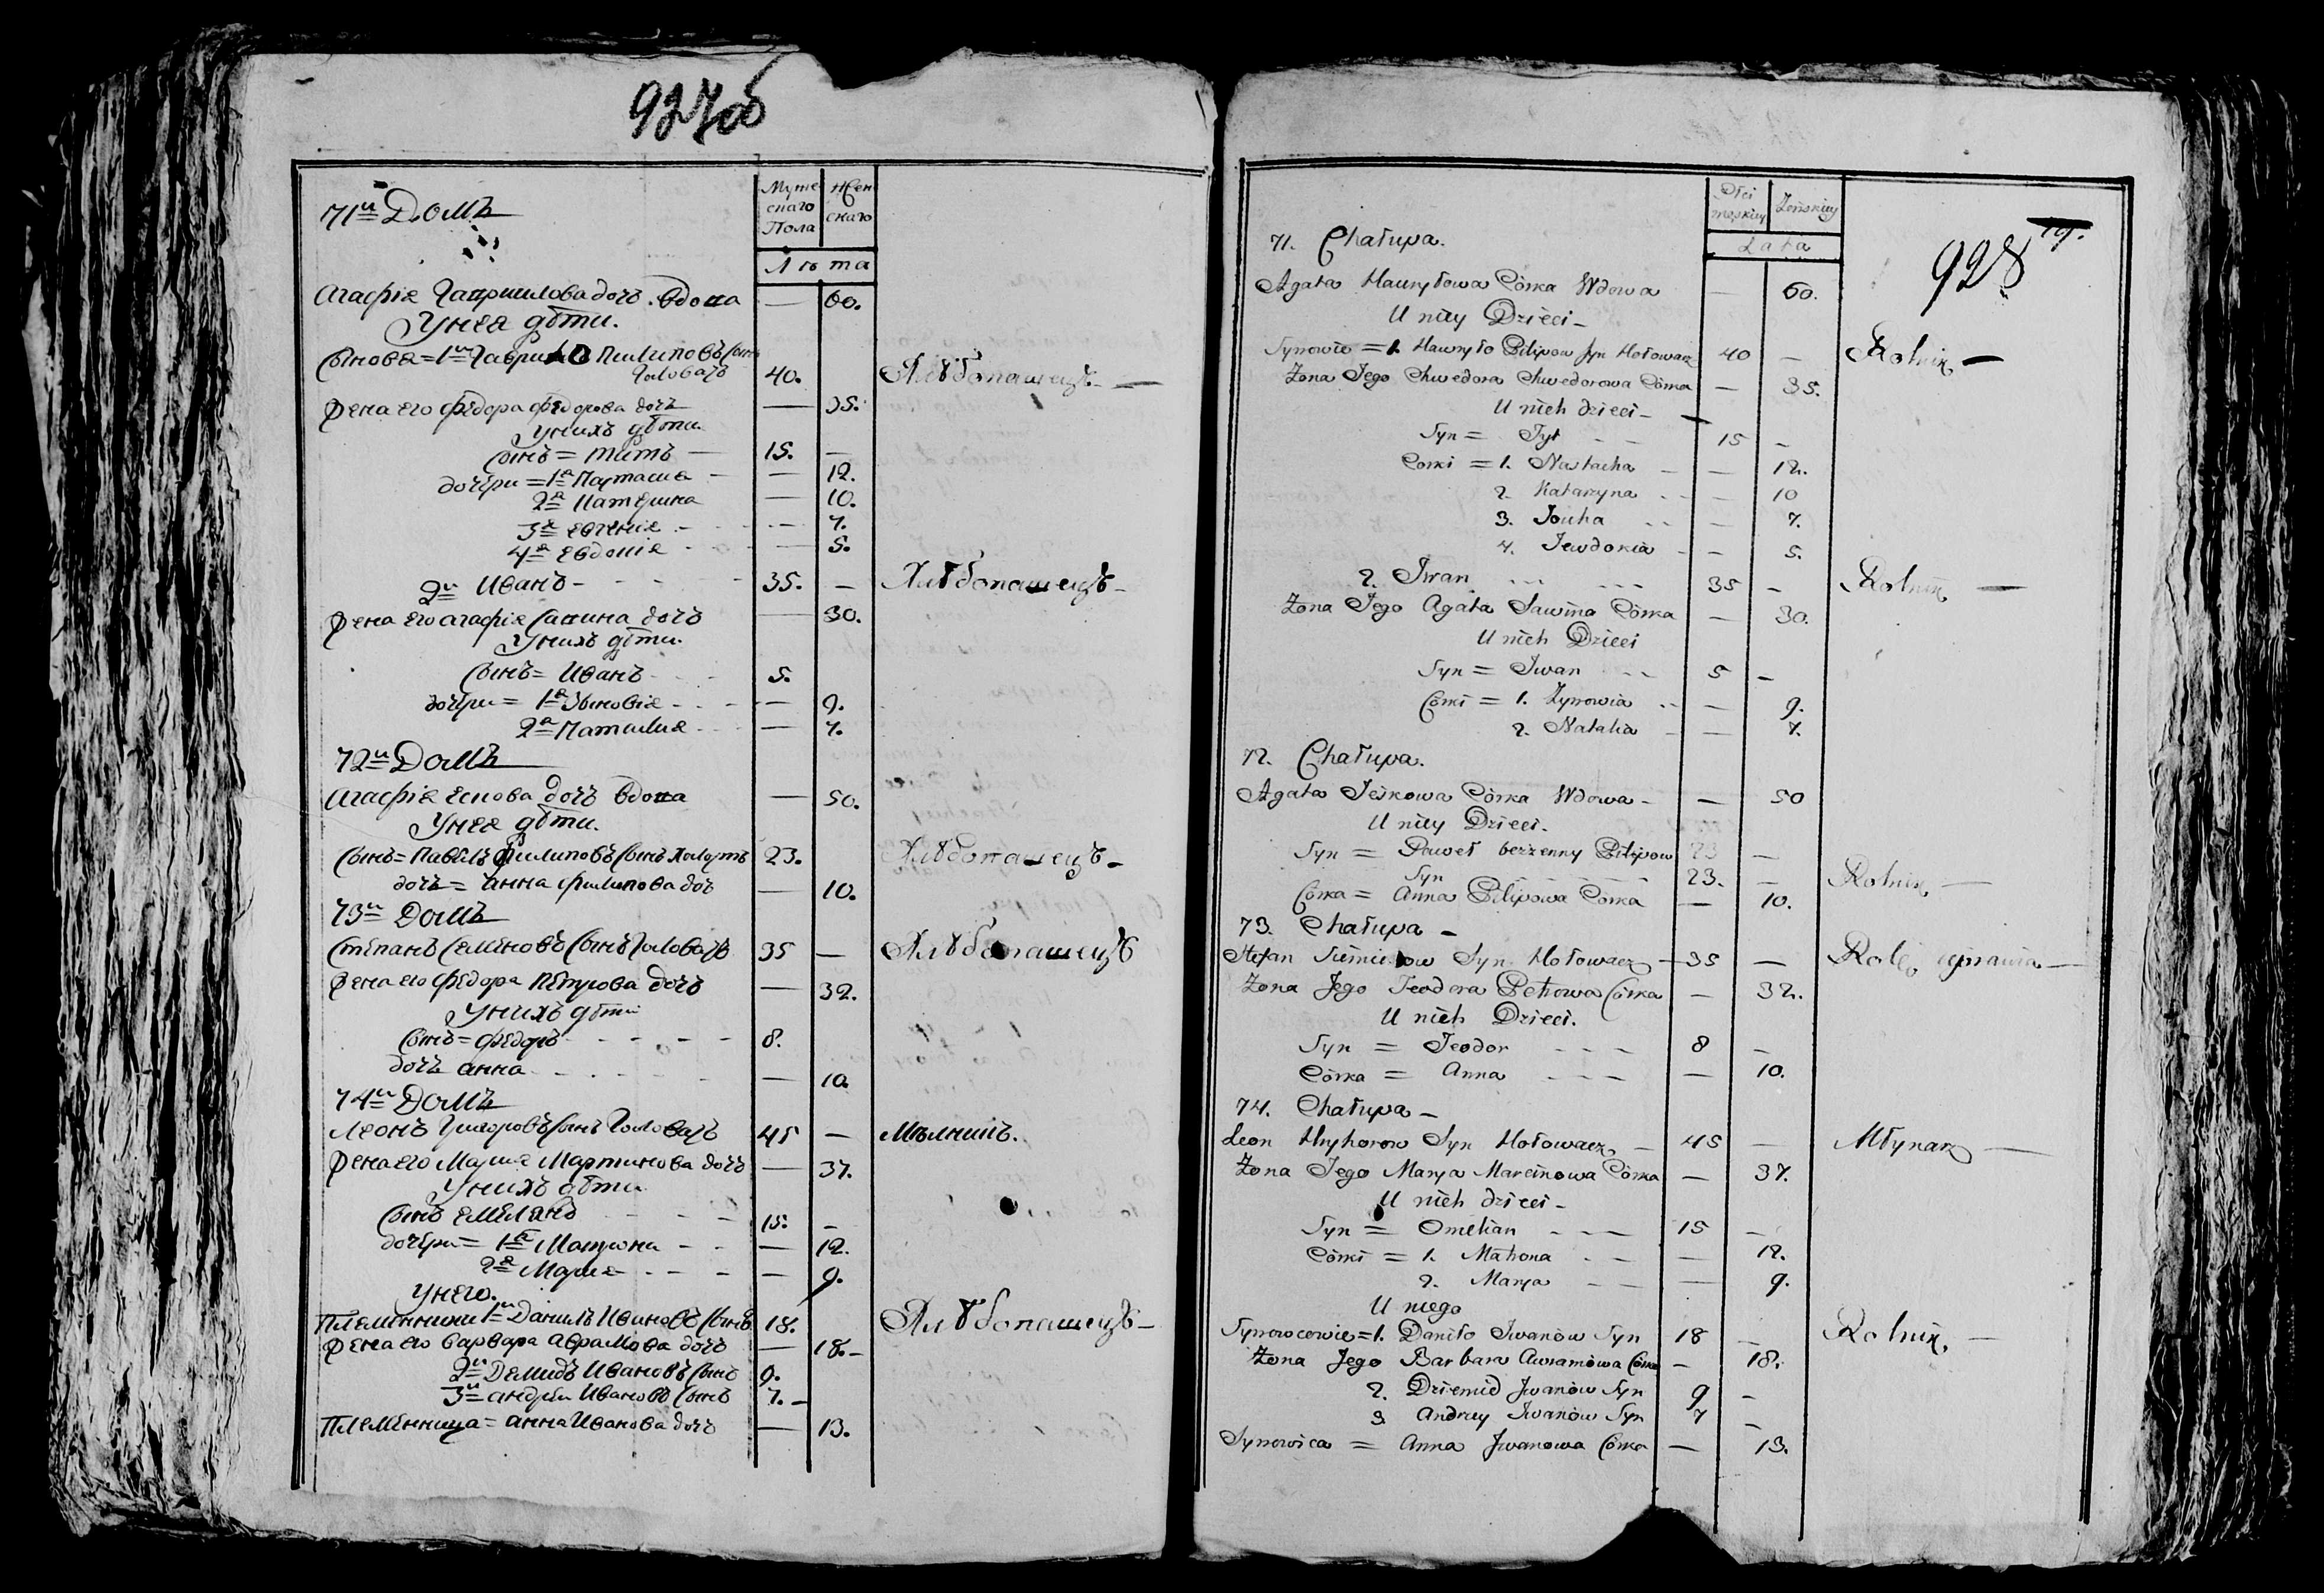 927об
71й Домъ
Муже
скаго
Пола
Жен
скаго
Лѣта
Агафія Гаврилова дочь. вдова — 60.
У нея дѣти.
Сыновя = 1й Гаврило Пилиповъ сынъ
Головачъ 40. Хлѣбопашецъ —
Жена его Федора Федорова дочь — 35.
У нихъ дѣти
Сынъ = Титъ — 15. —
дочери = 1я — — 12.
2я Катерина — 10.
3я Евгенія — 7.
4я Евдокія — 5.
2й Иванъ — 35. — Хлѣбопашецъ —
Жена его Агафія Савина дочь — 30.
У нихъ дѣти.
Сынъ = Иванъ 5.
дочери = 1я Зѣновія — 9.
2я Наталия — 7.
72й Домъ
Агафія Ескова дочь вдова — 50.
У нея дѣти.
Сынъ = Павелъ Филиповъ сынъ холостъ 23. Хлѣбопашецъ —
дочь = Анна Филипова доч — 10.
73й Домъ
Степанъ Семеновъ Сынъ Головачъ 35 — Хлѣбопашецъ
Жена его Федора Петрова дочь — 32.
У нихъ дѣти
Сынъ = Федоръ 8.
дочь Анна — 10
74й Домъ
Леонъ Григоровъ Сынъ Головачъ 45 — Мѣлникъ.
Жена его Мария Мартинова дочь — 37.
У нихъ дѣти
Сынъ Емелянъ 15. —
дочери = 1я Матрона — 12.
2я Мария — 9.
У него.
Племенники 1й Данилъ Ивановъ Сынъ 18. Хлѣбопашецъ —
Жена его Варвара Аврамова дочь — 18. —
2й Демидъ Ивановъ Сынъ 9.
3й Андрей Ивановъ Сынъ 7. —
Племенница = Анна Иванова дочь — 13.
Płci
męskiey
Żeńskiey
Lata
928
71. Chałupa.
Agata Hawryłowa Córka Wdowa — 60.
U niey Dzieci —
Synowie = 1. Hawryło Pilipow syn Hołowacz 40 — Rolnik —
Żona Jego Chwedora Chwedorowa Córka — 35.
U nich dzieci —
Syn = Tyt 15 —
Corki = 1. Nastacha — — 12.
2. Katarzyna — 10
3. Jouha — 7.
4. Jewdokia — 5.
2. Iwan 35 — Rolnik —
Żona Jego Agata Sawina Córka — 30.
U nich Dzieci
Syn = Iwan 5 —
Córki = 1. Zynowia — 9.
2. Natalia — 7.
72. Chałupa.
Agata Jeśkowa Córka Wdowa — — 50
U niey Dzieci.
Syn = Paweł bezżenny Pilipow 23 —
Syn 23. — Rolnik —
Córka = Anna Pilipowa Córka — 10.
73. Chałupa —
Stefan Siemienow Syn Hołowacz — 35 — Rolę uprawia —
Żona Jego Teodora Petrowa Córka — 32.
U nich Dzieci.
Syn = Teodor 8 —
Córka = Anna — 10.
74. Chałupa —
Leon Hryhorow Syn Hołowacz — 45 — Młynarz —
Żona Jego Marya Marcinowa Córka — 37.
U nich dzieci —
Syn = Omelian 15 —
Córki = 1. Matrona — 12.
2. Marya — 9.
U niego
Synowcowie = 1. Daniło Iwanów Syn 18 — Rolnik, —
Żona Jego Barbara Awramówa Córka — 18.
2. Dziemid Iwanów Syn 9 —
3. Andrey Iwanów Syn 7 —
Synowica = Anna Iwanowa Córka — 13.